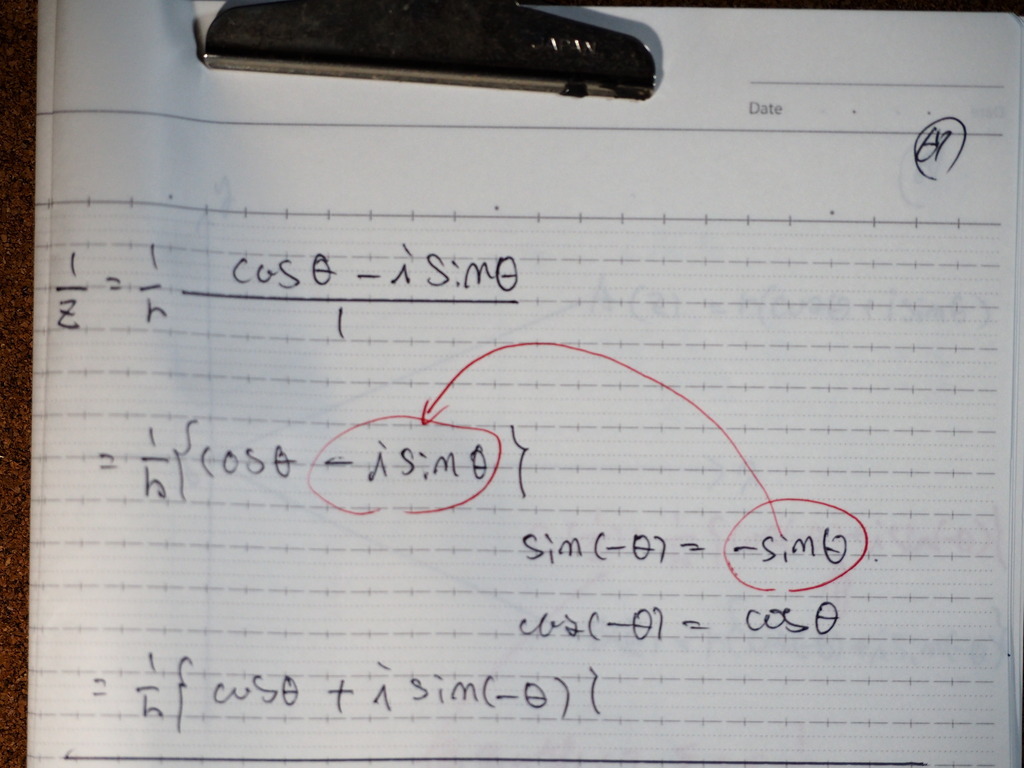 JAPAN
Date
1/z = 1/r (cosθ - i sinθ)/1
= 1/r {cosθ - i sinθ}
sin(-θ) = -sinθ.
cos(-θ) = cosθ
= 1/r { cosθ + i sin(-θ) }